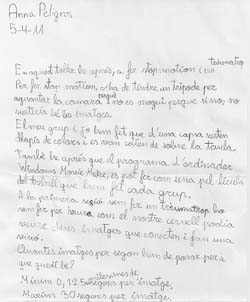 Anna Peligros
5-4-11
taumatrop
En aquest taller he après, a fer stop-motion i un
Per fer stop motion, s'ha de tindre un tripode per
aguantar la camara perquè no es mogui perque si no, no
surtiria bé les imatges.
El meu grup i jo hem fet que d'una capsa surten
llapis de colors i es van caient sobre la taula.
També he après que el programa d'ordinador
Windows Movie Maker, es pot fer com una pel·lícula
del treball que hem fet cada grup.
A la primera segió vem fer un traumatrop ho
vem fer per veure com el nostre cervell podia
veure dues imatges que conecten i fan una
visió.
Quantes imatges per segon hem de posar per a
que quedi bé?
Minim 0,125 milesimes de segons per imatge,
Maxim 30 segons per imatge.